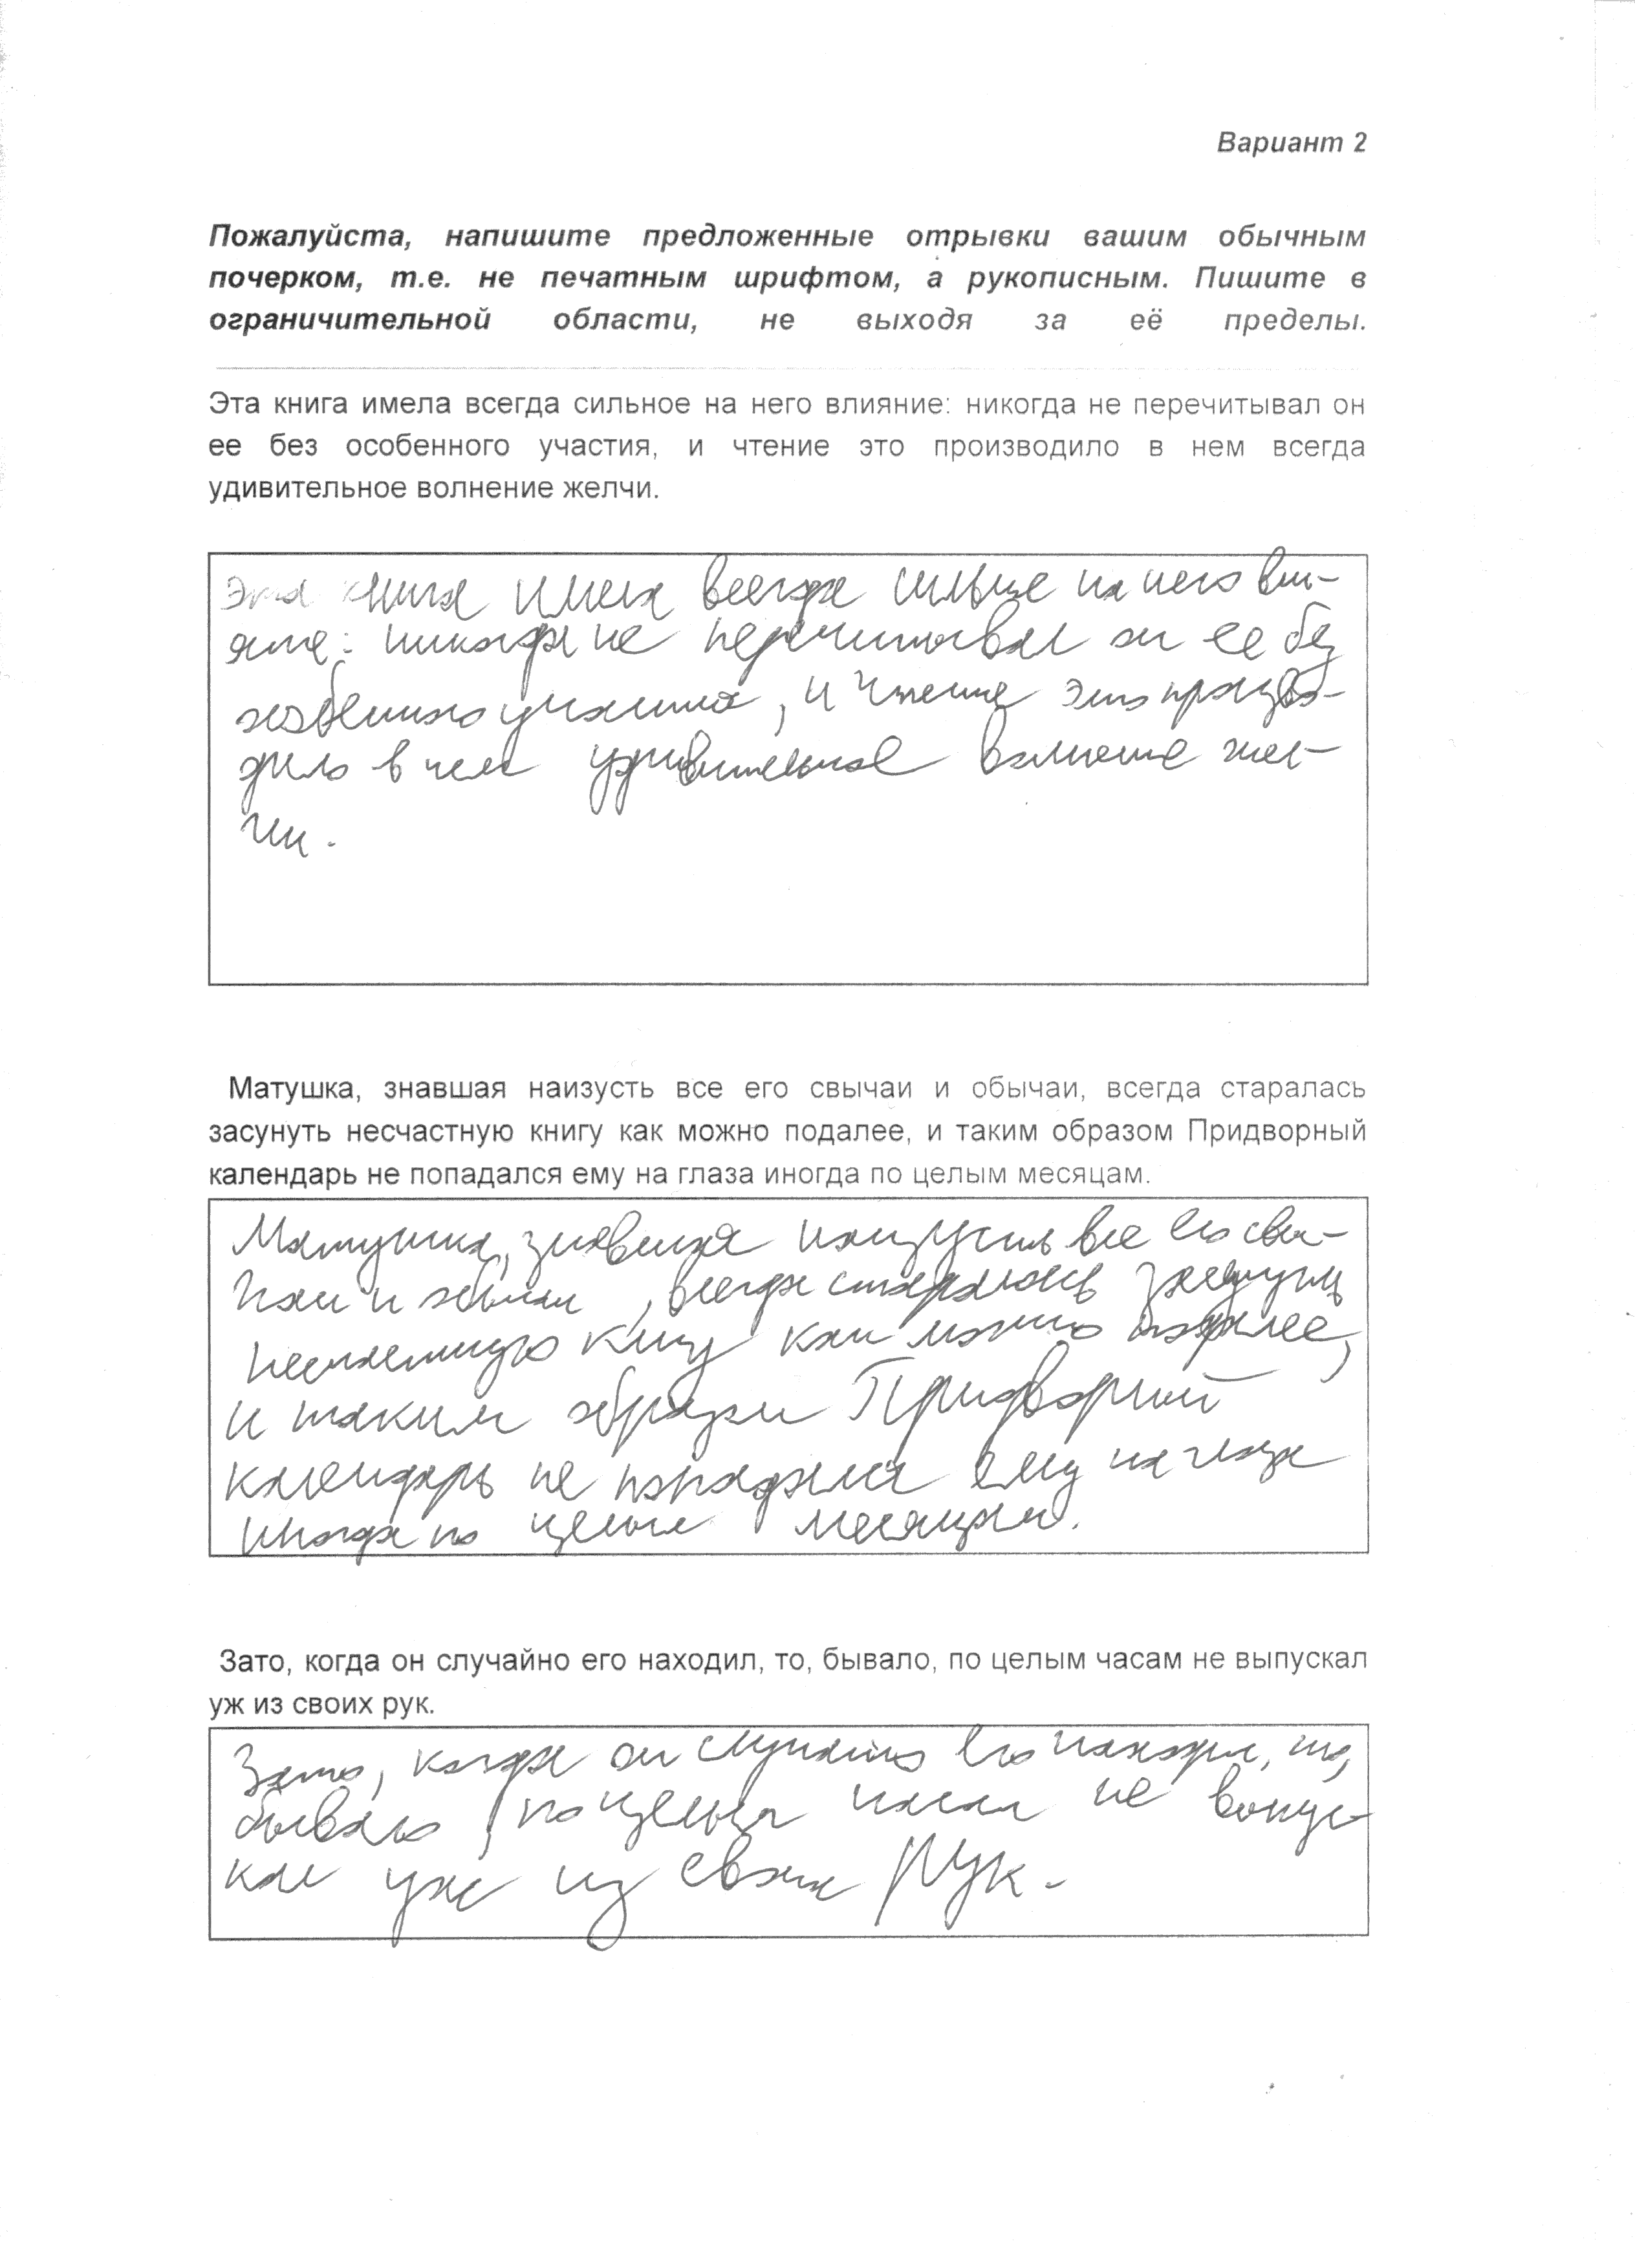 Вариант 2
Пожалуйста, напишите предложенные отрывки вашим обычным
почерком, т.е. не печатным шрифтом, а рукописным. Пишите в
ограничительной области, не выходя за её пределы.
Эта книга имела всегда сильное на него влияние: никогда не перечитывал он
ее без особенного участия, и чтение это производило в нем всегда
удивительное волнение желчи.
Эта книга имела всегда сильное на него вли-
яние: никогда не перечитывал он ее без
особенного участия, и чтение это произво-
дило в нем удивительное волнение жел-
чи.
Матушка, знавшая наизусть все его свычаи и обычаи, всегда старалась
засунуть несчастную книгу как можно подалее, и таким образом Придворный
календарь не попадался ему на глаза иногда по целым месяцам.
Матушка, знавшая наизусть все его свы-
чаи и обычаи, всегда старалась засунуть
несчастную книгу как можно подалее,
и таким образом Придворный
календарь не попадался ему на глаза
иногда по целым месяцам.
Зато, когда он случайно его находил, то, бывало, по целым часам не выпускал
уж из своих рук.
Зато, когда он случайно его находил, то,
бывало, по целым часам не выпус-
кал уж из своих рук.